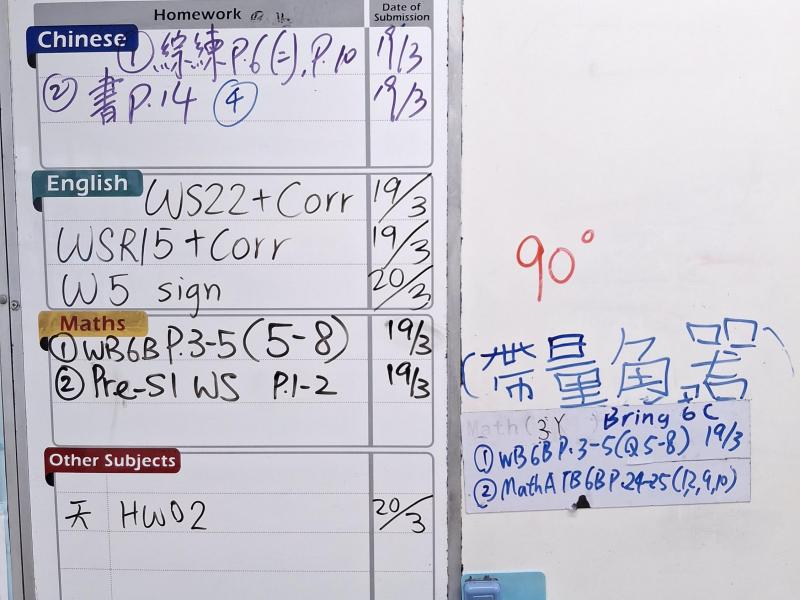 Homework
Date of Submission
Chinese
① 綜練 P.6(二), P.10 19/3
② 書 P.14 ④ 19/3
English
WS22 + Corr 19/3
WSR15 + Corr 19/3
W5 sign 20/3
Maths
① WB6B P.3-5 (5-8) 19/3
② Pre-S1 WS P.1-2 19/3
Other Subjects
天 HW02 20/3
90°
(帶量角器)
Math (3Y) Bring 6C
① WB6B P.3-5 (Q5-8) 19/3
② MathA TB6B P.24-25